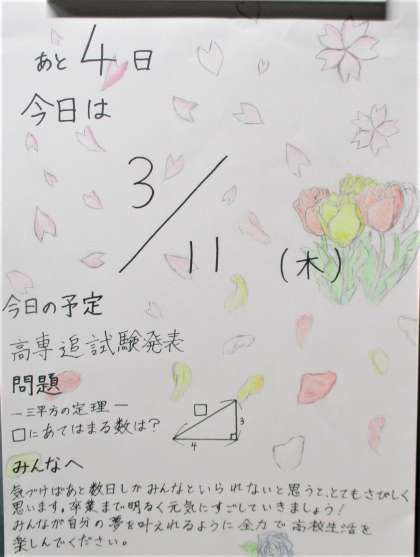 あと4日
今日は
3/11(木)
今日の予定
高専追試験発表
問題
ー三平方の定理ー
□にあてはまる数は?
□
3
4
みんなへ
気づけばあと数日しかみんなといられないと思うと、とてもさびしく
思います。卒業まで明るく元気にすごしていきましょう!
みんなが自分の夢を叶えれるように全力で高校生活を
楽しんでください。